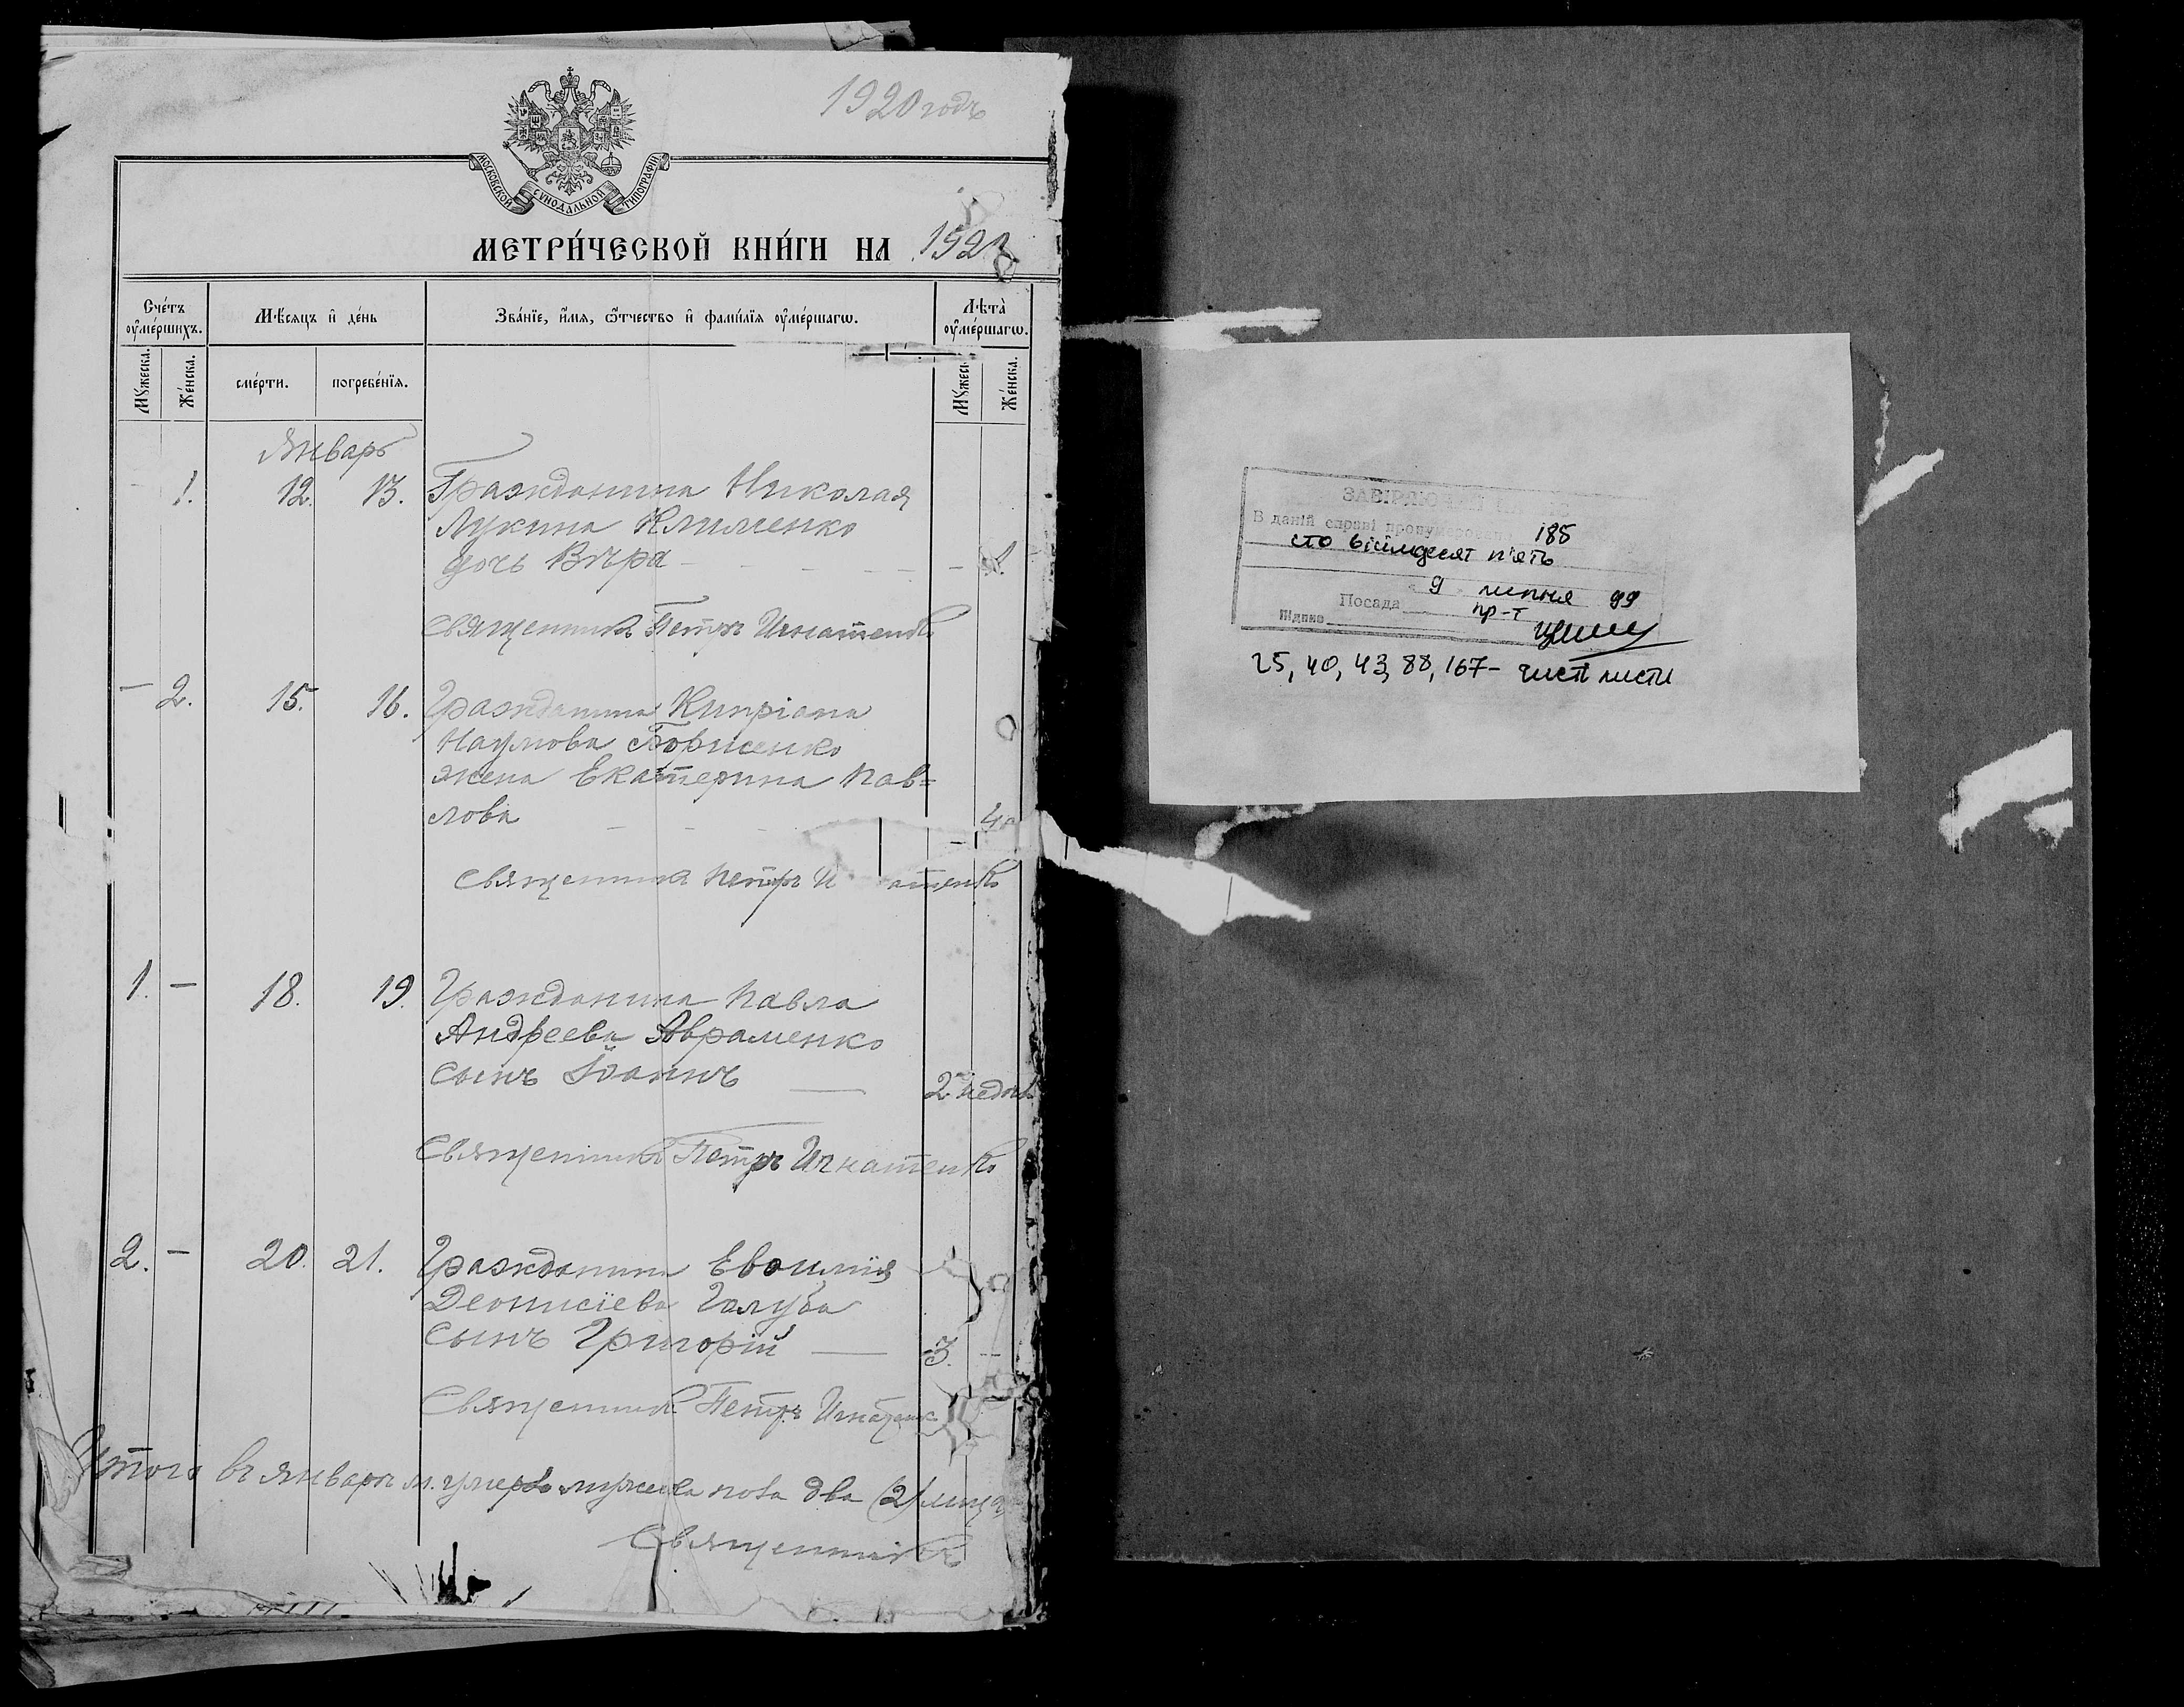 1920 годъ
МОСКОВСКОЙ СѴНОДАЛЬНОЙ ТИПОГРАФІИ
МЕТРИ́ЧЕСКОЙ КНИ́ГИ НА 192
Сче́тъ оу҆ме́ршихъ.
Мѣ́сяцъ и҆ де́нь
Зва́нїе, и҆́мя, ѻ҆́тчество и҆ фами́лїя оу҆ме́ршагѡ.
Лѣта̀ оу҆ме́ршагѡ.
Мꙋ́жеска.
Же́нска.
сме́рти.
погребе́нїя.
Мꙋ́жеск
Же́нска.
Январь
1. 12. 13. Гражданина Николая
Лукина Клименко
дочь Вѣра
Священникъ Петръ Игнатенко
— 2. 15. 16. Гражданина Кипріана
Наумова Борисенко
жена Екатерина Пав=
лова
Священникъ Петръ И атенко
1. — 18. 19. Гражданина Павла
Андреева Авраменко
сынъ Іоаннъ — 2 недѣл
Священникъ Петръ Игнатенко
2. — 20. 21. Гражданина
Деонисіева Голуба
сынъ Григорій — 3. —
Священникъ Петръ Игнатенк
Итого въ январѣ м. умерло мужеска пола два (2) лица
Священникъ
В даній справі пронумеровано 185
сто вісімдесят п'ять
9 липня 99
Посада пр-т
Підпис
25, 40, 43, 88, 167 - чисті листи